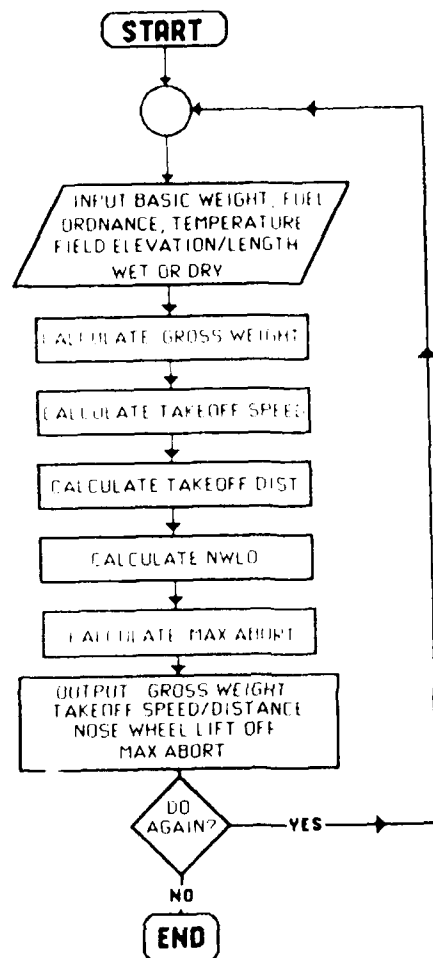 START
INPUT BASIC WEIGHT, FUEL
ORDNANCE, TEMPERATURE
FIELD ELEVATION/LENGTH
WET OR DRY
CALCULATE GROSS WEIGHT
CALCULATE TAKEOFF SPEED
CALCULATE TAKEOFF DIST
CALCULATE NWLO
CALCULATE MAX ABORT
OUTPUT GROSS WEIGHT
TAKEOFF SPEED/DISTANCE
NOSE WHEEL LIFT OFF
MAX ABORT
DO
AGAIN?
YES
NO
END